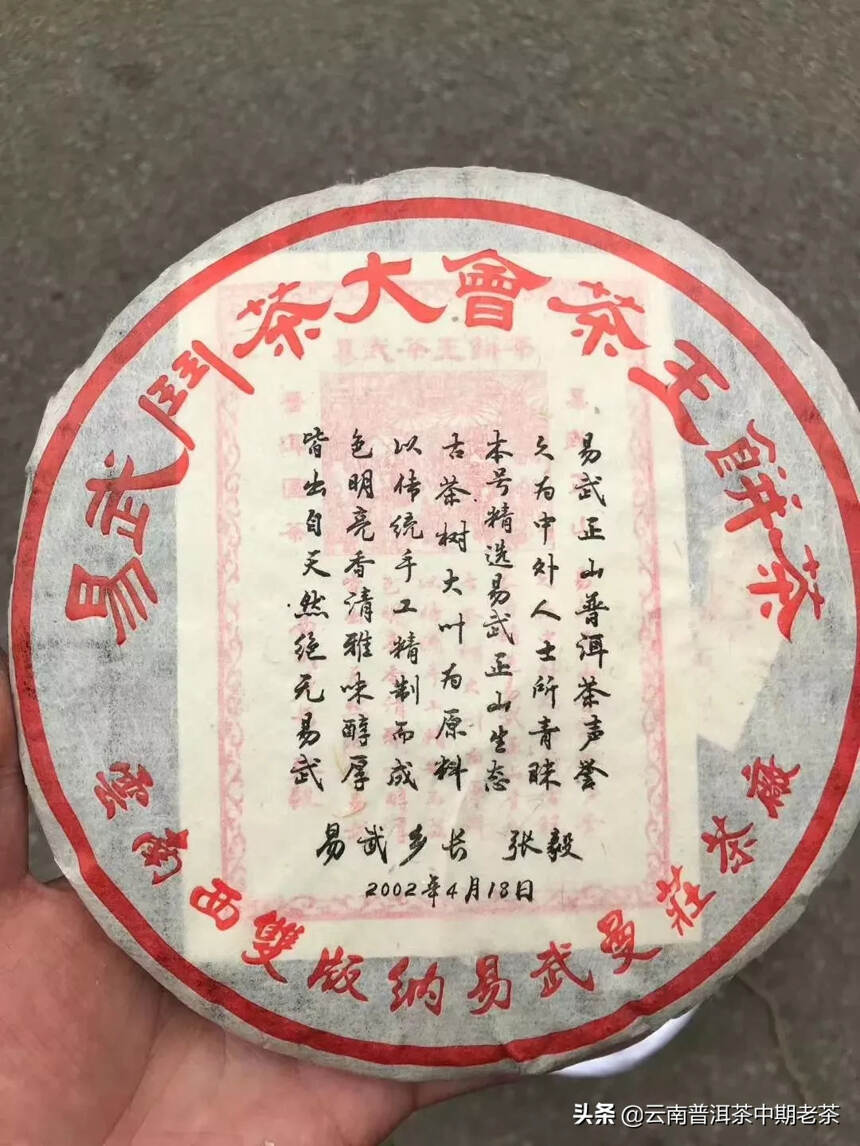 易武鬥茶大會茶王餅茶
易武正山普洱茶声誉
久为中外人士所青睐
本号精选易武正山生态
古茶树大叶为原料
以传统手工精制而成
色明亮香清雅味醇厚
皆出自天然绝无易武
易武乡长 张毅
2002年4月18日
雲南西雙版納易武曼莊茶廠
头条 @云南普洱茶中期老茶